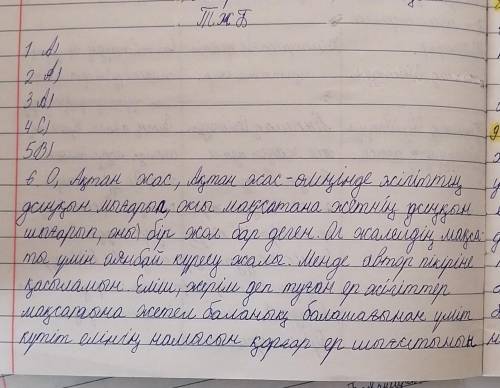 ТЖБ
1 А)
2 А)
3 А)
4 С)
5 В)
6 О, Ақтан жас, Ақтан жас - өлеңінде жігіттің
дсңқын шығарып, осы мақсатана жетнің дсңқын
шығарып, оны) бір жол бар деген. Ол жалелдің мақса-
ты үмін аянбай күресу жалы. Менде автор пікіріне
қасыламын. Елім, жерім деп туған ер жігіттер
мақсатына жетел баланың балашағынан үміт
күтіт елінгің намысын қорғар ер шығатынын